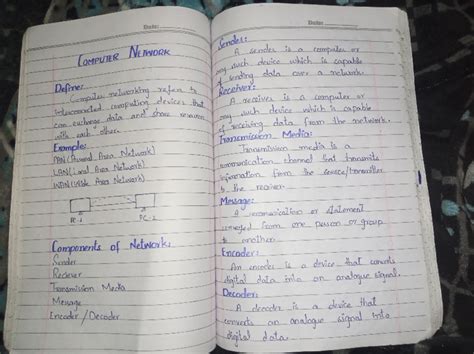 Date:
COMPUTER NETWORK
Define:
Computer networking refers to
interconnected computing devices that
can exchange data and share resources
with each other.
Example:
PAN (Personal Area Network)
LAN (Local Area Network)
WAN (Wide Area Network)
PC-1
PC-2
Components of Network:
Sender
Reciever
Transmission Media
Message
Encoder / Decoder
Date:
Sender:
A sender is a computer or
any such device which is capable
of sending data over a network.
Receiver:
A receiver is a computer or
any such device which is capable
of receiving data from the network.
Transmission Media:
Transmission media is a
communication channel that transmits
information from the source/transmitter
to the receiver
Message:
A communication or statement
conveyed from one person or group
to another.
Encoder:
An encoder is a device that converts
digital data into an analogue signal.
Decoder:
A decoder is a device that
converts an analogue signal into
digital data.